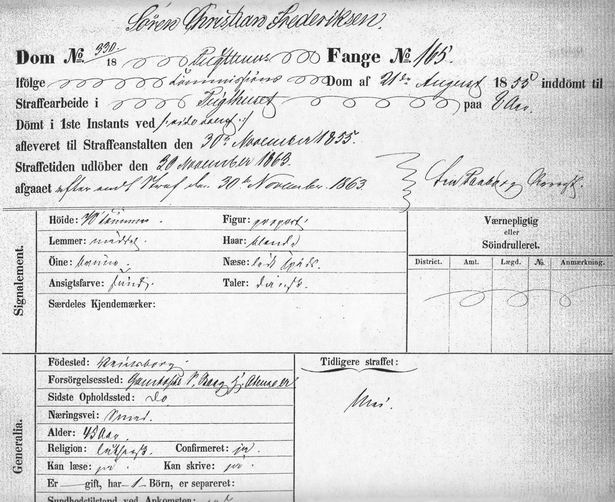 Søren Christian Frederiksen.
Dom № 330. 18 Tugthuus Fange № 165.
Ifölge Commissions Dom af 21de August 1855 inddömt til
Straffearbeide i Tugthuset paa 8 Aar.
Dömt i 1ste Instants ved
afleveret til Straffeanstalten den 30te November 1855.
Straffetiden udlöber den 29 November 1863.
afgaaet efter endt Straf den 30te November 1863
Signalement.
Höide: Figur: proport:
Lemmer: middel Haar: blonde
Öine: bruune Næse: lidt spids.
Ansigtsfarve: sund Taler: dansk
Særdeles Kjendemærker:
Værnepligtig
eller
Söindrulleret.
District. Amt. Lægd. №. Anmærkning.
Generalia.
Födested:
Forsörgelsessted:
Sidste Opholdssted: Do
Næringsvei: Smed.
Alder: 43 Aar.
Religion: luthersk Confirmeret: ja
Kan læse: ja Kan skrive: ja
Er gift, har 1 Börn, er separeret:
Sundhedstilstand ved Ankomsten:
Tidligere straffet:
Nei.